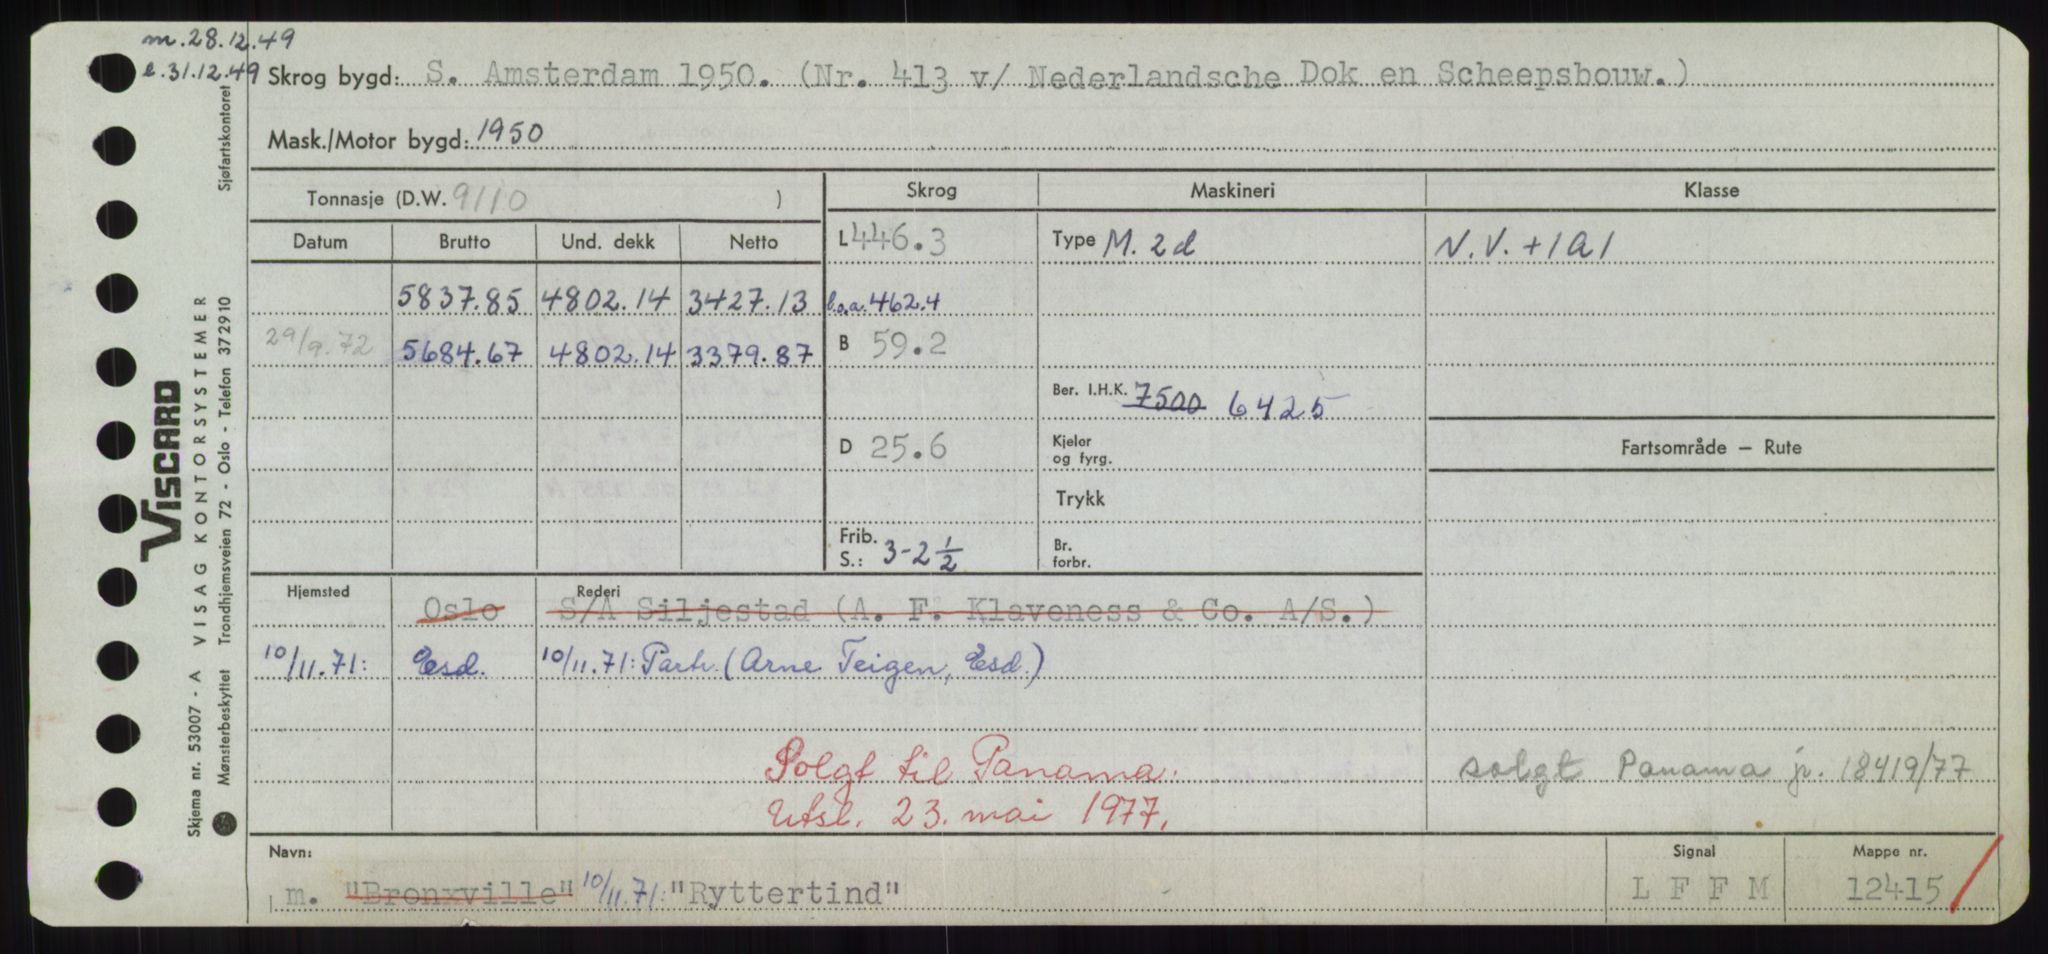 m.28.12.49
l.31.12.49
Skrog bygd: S. Amsterdam 1950. (Nr. 413 v/ Nederlandsche Dok en Scheepsbouw.)
Mask./Motor bygd: 1950
Tonnasje (D.W. 9110 )
Skrog Maskineri Klasse
Datum Brutto Und. dekk Netto
L 446.3 Type M. 2 d N.V. +1A1
5837.85 4802.14 3427.13 l.o.a. 462.4
29/9.72 5684.67 4802.14 3379.87 B 59.2
Ber. I.H.K. 7500 6425
D 25.6 Kjeler og fyrg. Fartsområde — Rute
Trykk
Frib. S.: 3-2 1/2 Br. forbr.
Hjemsted Rederi
Oslo S/A Siljestad (A. F. Klaveness & Co. A/S.)
10/11.71: Esd. 10/11.71: Partr. (Arne Teigen, Esd.)
Solgt til Panama. solgt Panama jr. 18419/77
Utsl. 23. mai 1977.
Navn: Signal Mappe nr.
m. "Bronxville" 10/11.71: "Ryttertind" L F F M 12415
Skjema nr. 53007 - A VISAG KONTORSYSTEMER
Mønsterbeskyttet Trondhjemsveien 72 - Oslo - Telefon 372910 Sjøfartskontoret
VISCARD